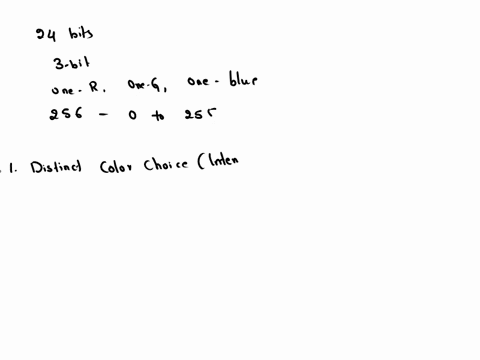 24 bits
3-bit
one-R. One-G, one-blue
256 - 0 to 255
1. Distinct Color Choice (Inten